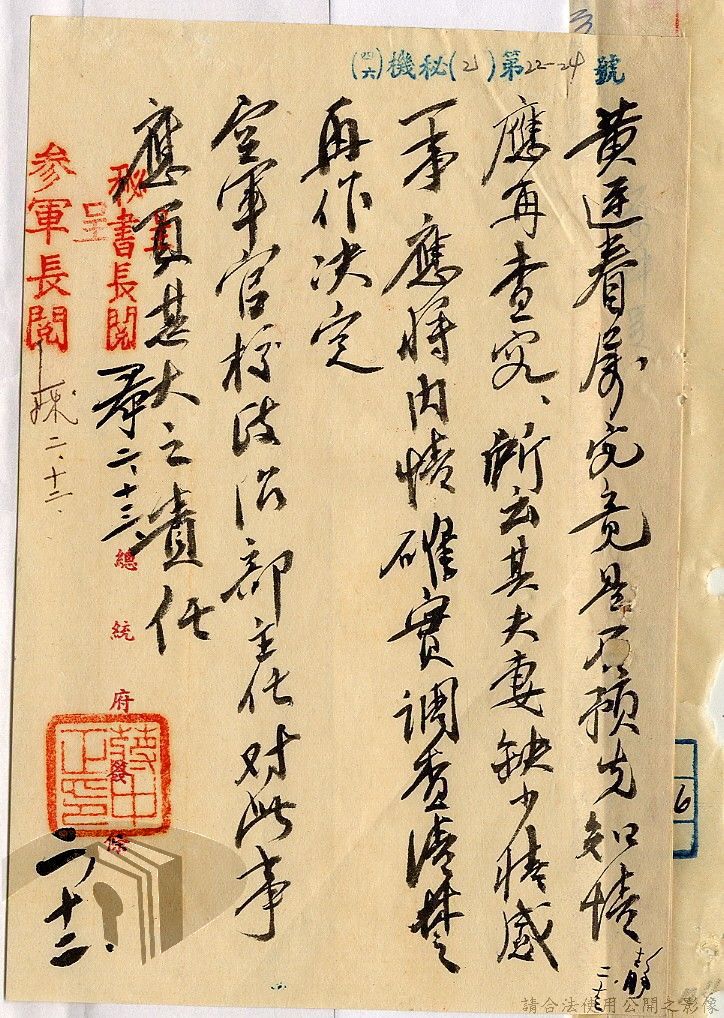 (四六)機秘(乙)第22-24號
黃逆眷屬究竟是否預先知情
應再查究、所云其夫妻缺少情感
一事應將內情確實調查清楚
再作決定
空軍官校政治部主任對此事
應負其大之責任
二、十二、
總統府發條
蔣中正印
秘書長閱
呈
參軍長閱
二、十二、
6
請合法使用公開之影像